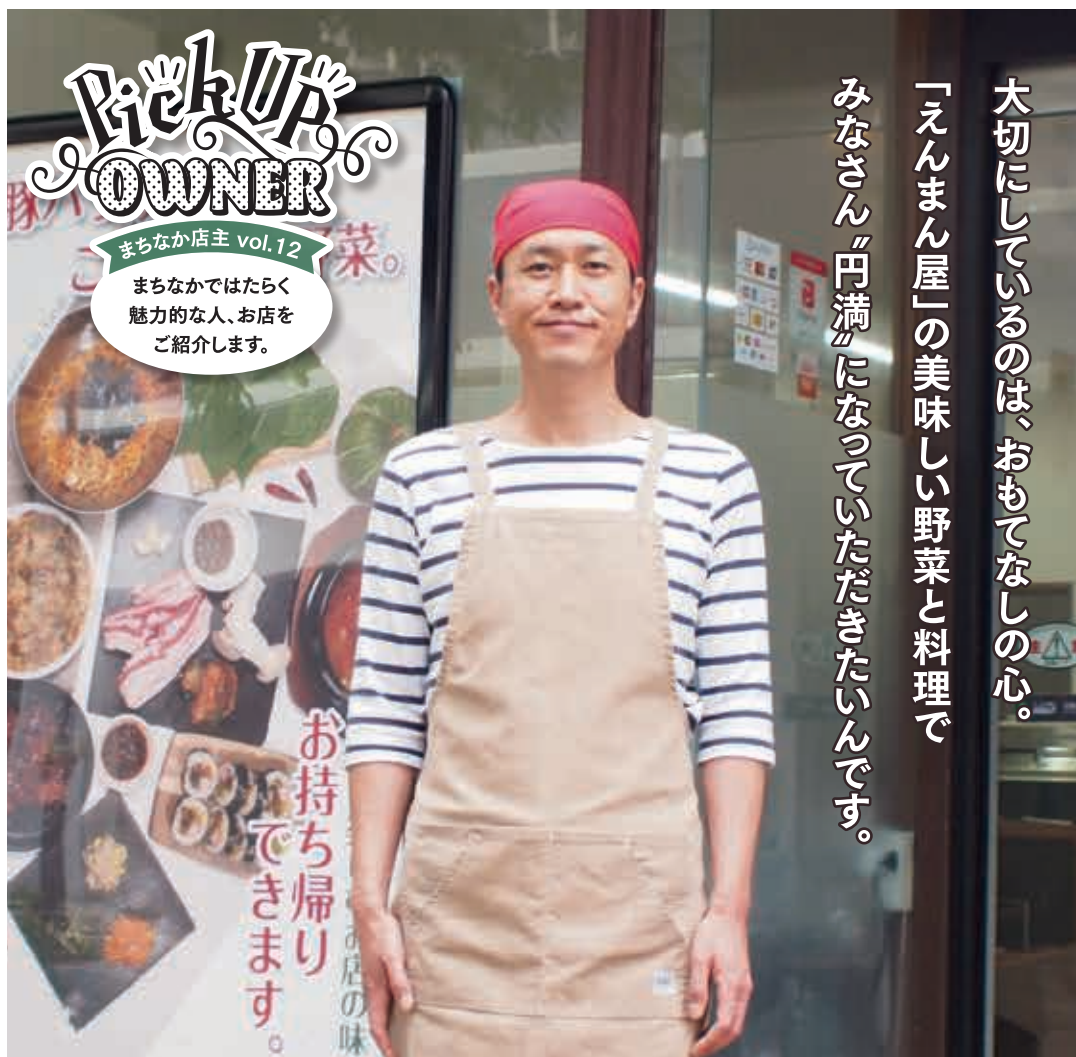 Pick UP
OWNER
まちなか店主 vol.12
まちなかではたらく
魅力的な人、お店を
ご紹介します。
大切にしているのは、おもてなしの心。
「えんまん屋」の美味しい野菜と料理で
みなさん〝円満〟になっていただきたいんです。
菜。
お持ち帰り
できます。
お店の味